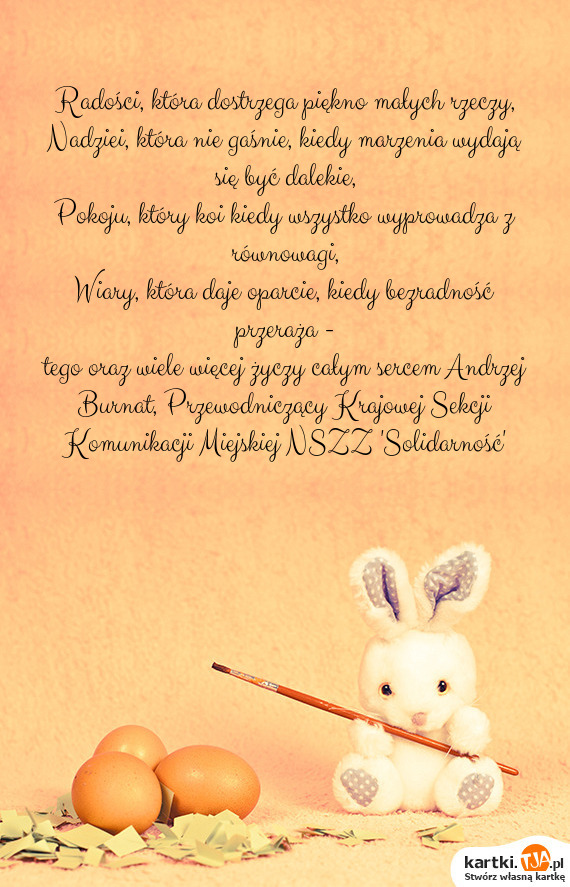 Radości, która dostrzega piękno małych rzeczy,
Nadziei, która nie gaśnie, kiedy marzenia wydają
się być dalekie,
Pokoju, który koi kiedy wszystko wyprowadza z
równowagi,
Wiary, która daje oparcie, kiedy bezradność
przeraża -
tego oraz wiele więcej życzy całym sercem Andrzej
Burnat, Przewodniczący Krajowej Sekcji
Komunikacji Miejskiej NSZZ 'Solidarność'
kartki.TJA.pl
Stwórz własną kartkę